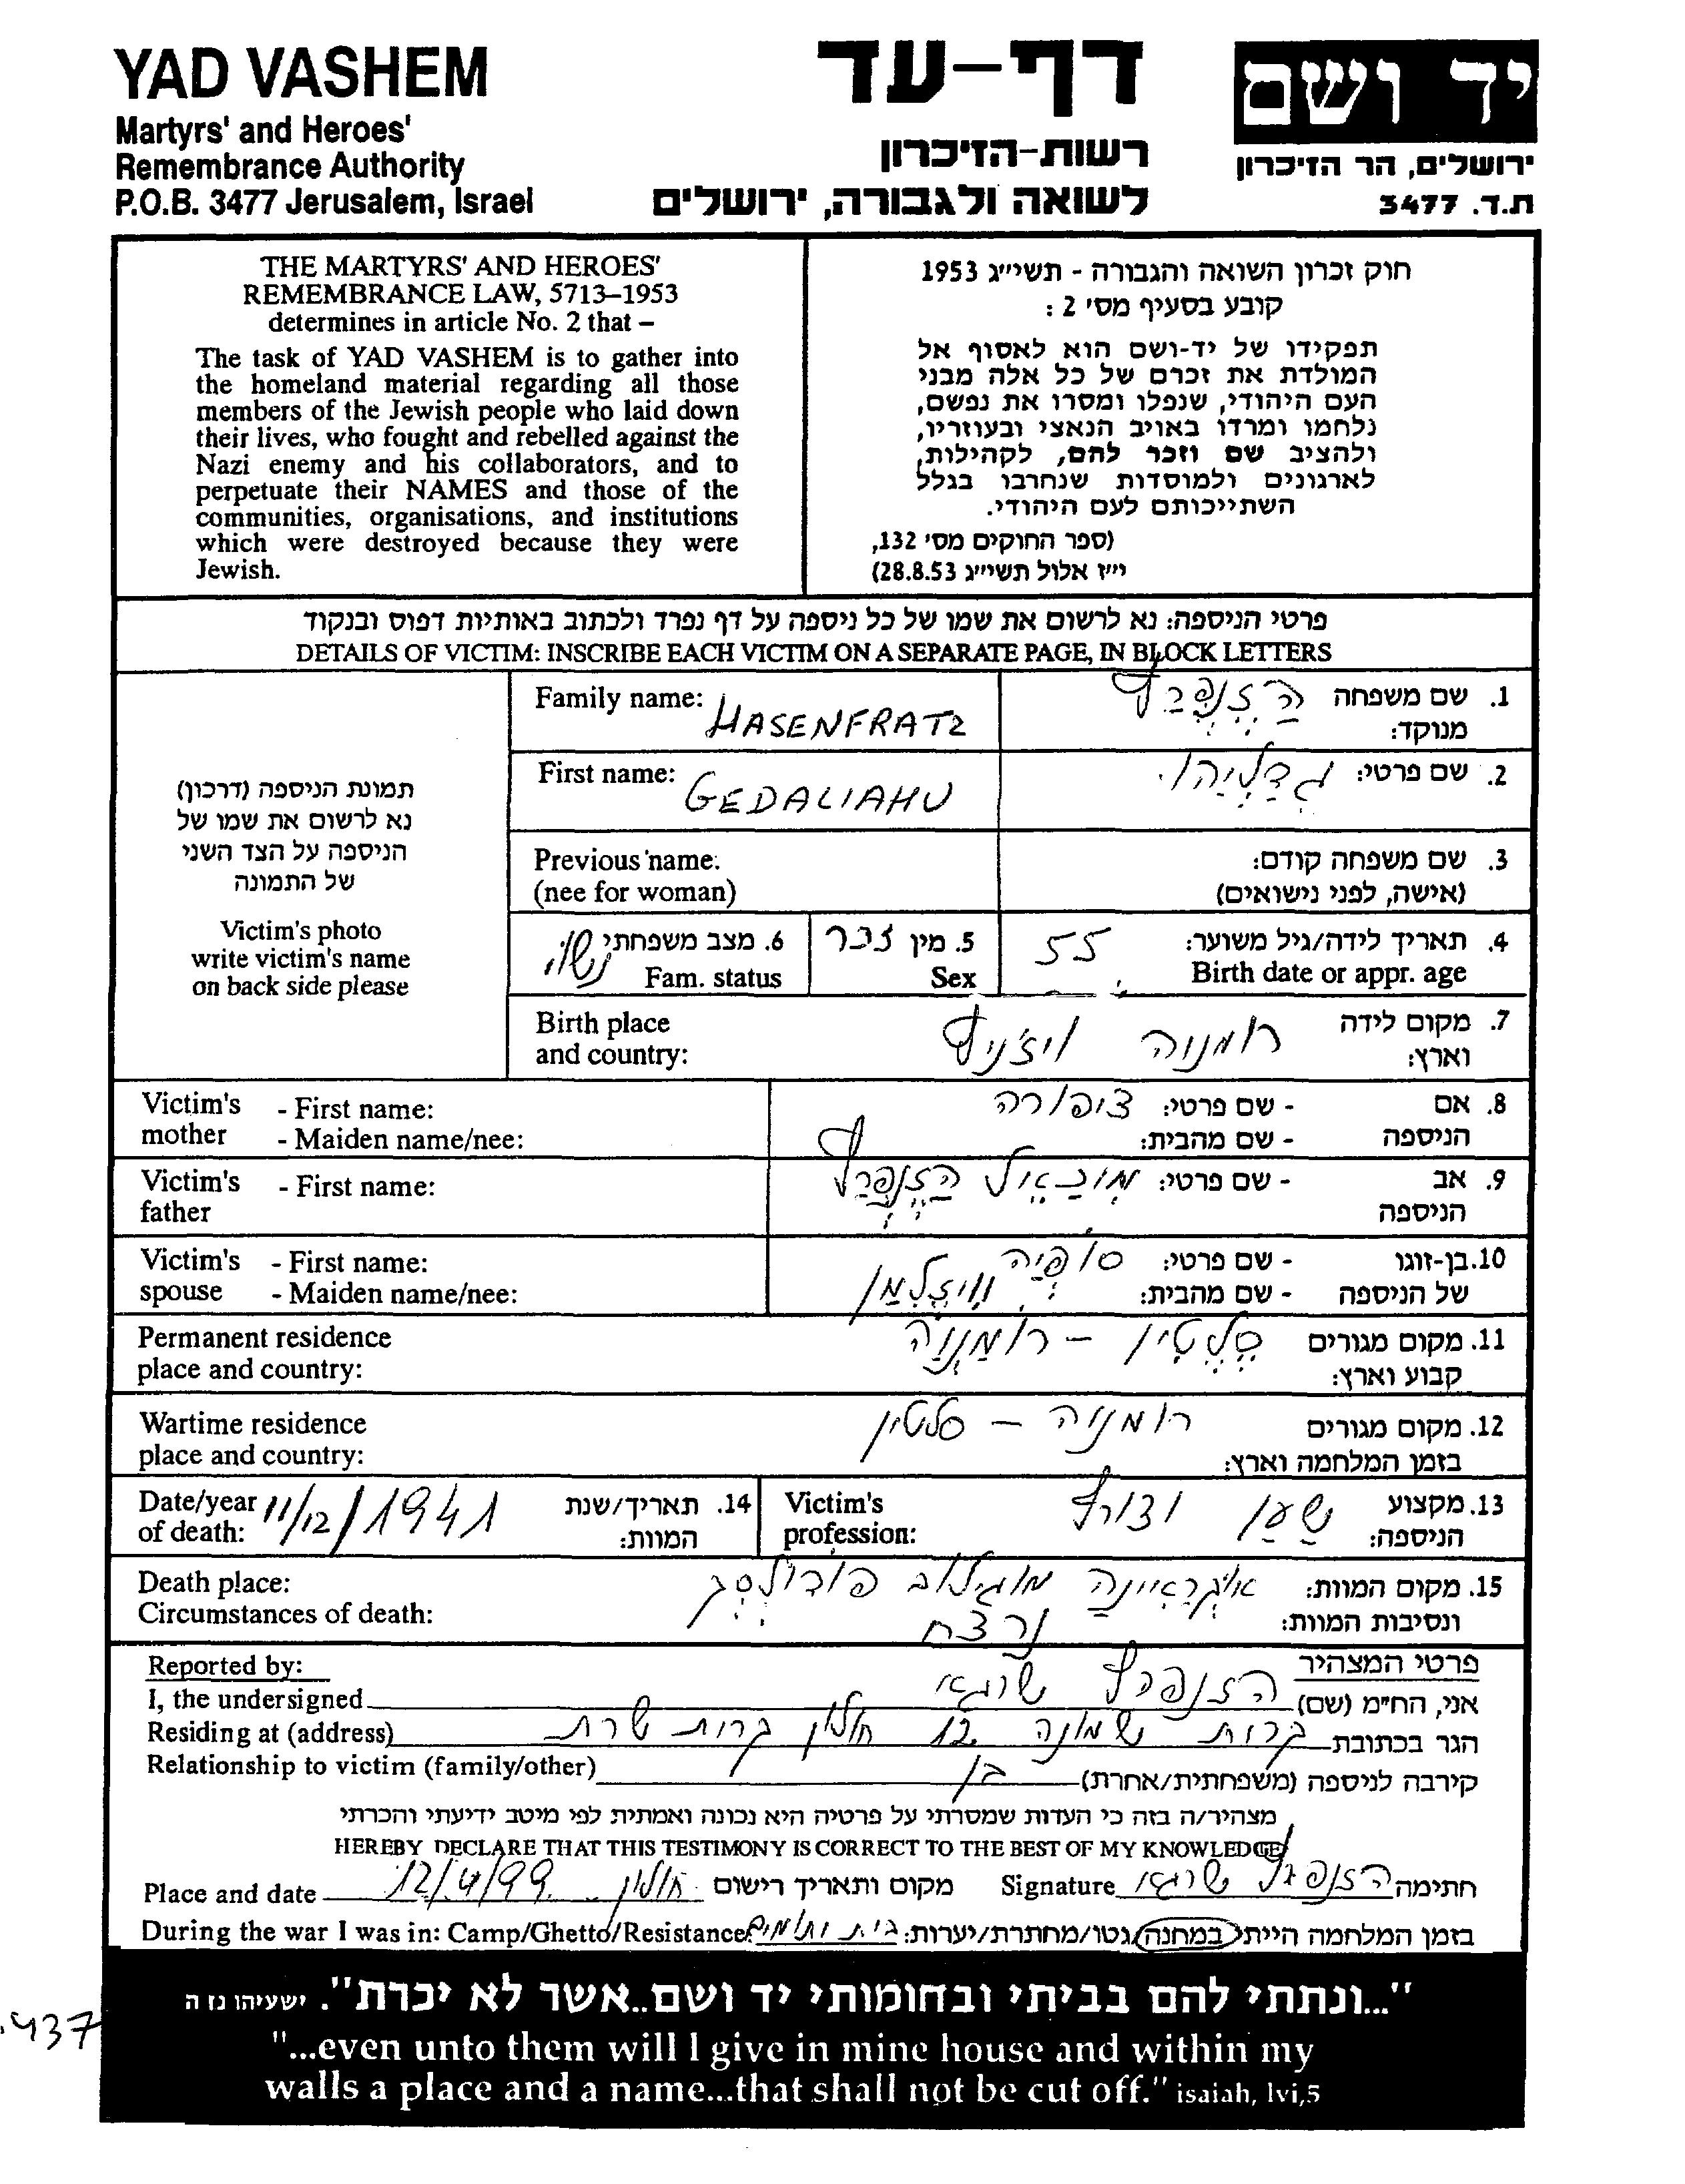 YAD VASHEM
Martyrs' and Heroes'
Remembrance Authority
P.O.B. 3477 Jerusalem, Israel
דף-עד
רשות-הזיכרון
לשואה ולגבורה, ירושלים
יד ושם
ירושלים, הר הזיכרון
ת.ד. 3477
THE MARTYRS' AND HEROES'
REMEMBRANCE LAW, 5713–1953
determines in article No. 2 that –
The task of YAD VASHEM is to gather into
the homeland material regarding all those
members of the Jewish people who laid down
their lives, who fought and rebelled against the
Nazi enemy and his collaborators, and to
perpetuate their NAMES and those of the
communities, organisations, and institutions
which were destroyed because they were
Jewish.
חוק זכרון השואה והגבורה - תשי״ג 1953
קובע בסעיף מס׳ 2 :
תפקידו של יד-ושם הוא לאסוף אל
המולדת את זכרם של כל אלה מבני
העם היהודי, שנפלו ומסרו את נפשם,
נלחמו ומרדו באויב הנאצי ובעוזריו,
ולהציב שם וזכר להם, לקהילות,
לארגונים ולמוסדות שנחרבו בגלל
השתייכותם לעם היהודי.
(ספר החוקים מס׳ 132,
י״ז אלול תשי״ג 28.8.53)
פרטי הניספה: נא לרשום את שמו של כל ניספה על דף נפרד ולכתוב באותיות דפוס ובנקוד
DETAILS OF VICTIM: INSCRIBE EACH VICTIM ON A SEPARATE PAGE, IN BLOCK LETTERS
תמונת הניספה (דרכון)
נא לרשום את שמו של
הניספה על הצד השני
של התמונה
Victim's photo
write victim's name
on back side please
Family name: HASENFRATZ
1. שם משפחה הזנפרץ
מנוקד:
First name: GEDALIAHU
2. שם פרטי: גדליהו
Previous name:
(nee for woman)
3. שם משפחה קודם:
(אישה, לפני נישואים)
4. תאריך לידה/גיל משוער: 55
Birth date or appr. age
5. מין זכר
Sex
6. מצב משפחתי נשוי
Fam. status
Birth place
and country:
7. מקום לידה רומניה ויז'ניץ
וארץ:
Victim's - First name:
mother - Maiden name/nee:
8. אם - שם פרטי: ציפורה
הניספה - שם מהבית:
Victim's - First name:
father
9. אב - שם פרטי: מיכאל הזנפרץ
הניספה
Victim's - First name:
spouse - Maiden name/nee:
10. בן-זוגו - שם פרטי: סופיה
של הניספה - שם מהבית: וויזלמן
Permanent residence
place and country:
11. מקום מגורים סלטין – רומניה
קבוע וארץ:
Wartime residence
place and country:
12. מקום מגורים רומניה – סלטין
בזמן המלחמה וארץ:
Victim's
profession:
13. מקצוע שען וצורף
הניספה:
Date/year 11/12/1941
of death:
14. תאריך/שנת
המוות:
Death place:
Circumstances of death:
15. מקום המוות: אוקראיינה מוגילוב פודולסק
ונסיבות המוות: נרצח
Reported by:
פרטי המצהיר
I, the undersigned
אני, הח״מ (שם) הזנפרץ שרגא
Residing at (address)
הגר בכתובת קרית שמונה 12 חולון קרית שרת
Relationship to victim (family/other)
קירבה לניספה (משפחתית/אחרת) בן
מצהיר/ה בזה כי העדות שמסרתי על פרטיה היא נכונה ואמתית לפי מיטב ידיעתי והכרתי
HEREBY DECLARE THAT THIS TESTIMONY IS CORRECT TO THE BEST OF MY KNOWLEDGE
Place and date 12/4/99 חולון מקום ותאריך רישום
Signature הזנפרץ שרגא חתימה
During the war I was in: Camp/Ghetto/Resistance
בזמן המלחמה הייתי במחנה/גטו/מחתרת/יערות: בית יתומים
"...ונתתי להם בביתי ובחומותי יד ושם..אשר לא יכרת". ישעיהו נו ה
"...even unto them will I give in mine house and within my
walls a place and a name...that shall not be cut off." isaiah, lvi,5
437